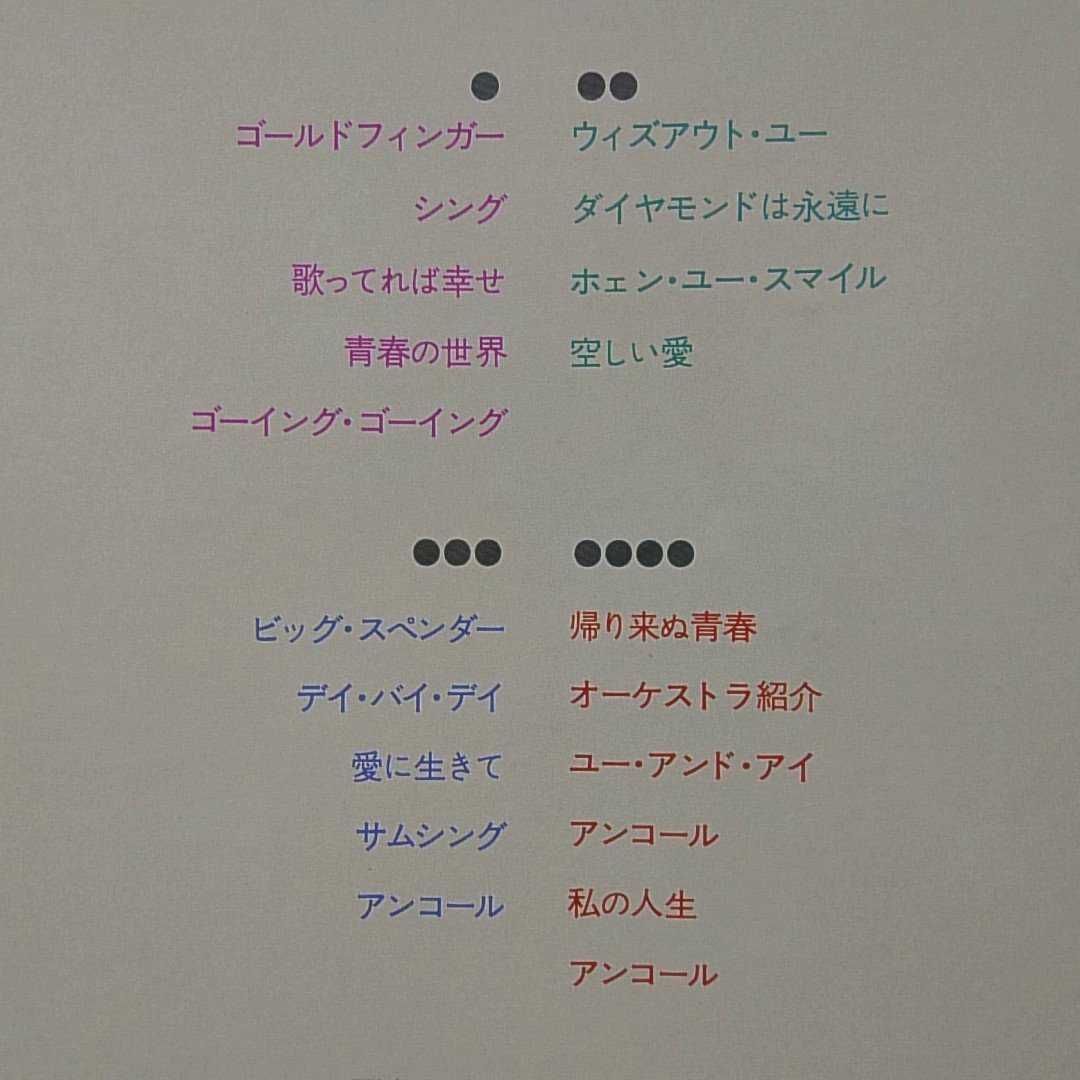 ●
ゴールドフィンガー
シング
歌ってれば幸せ
青春の世界
ゴーイング・ゴーイング
●●
ウィズアウト・ユー
ダイヤモンドは永遠に
ホェン・ユー・スマイル
空しい愛
●●●
ビッグ・スペンダー
デイ・バイ・デイ
愛に生きて
サムシング
アンコール
●●●●
帰り来ぬ青春
オーケストラ紹介
ユー・アンド・アイ
アンコール
私の人生
アンコール